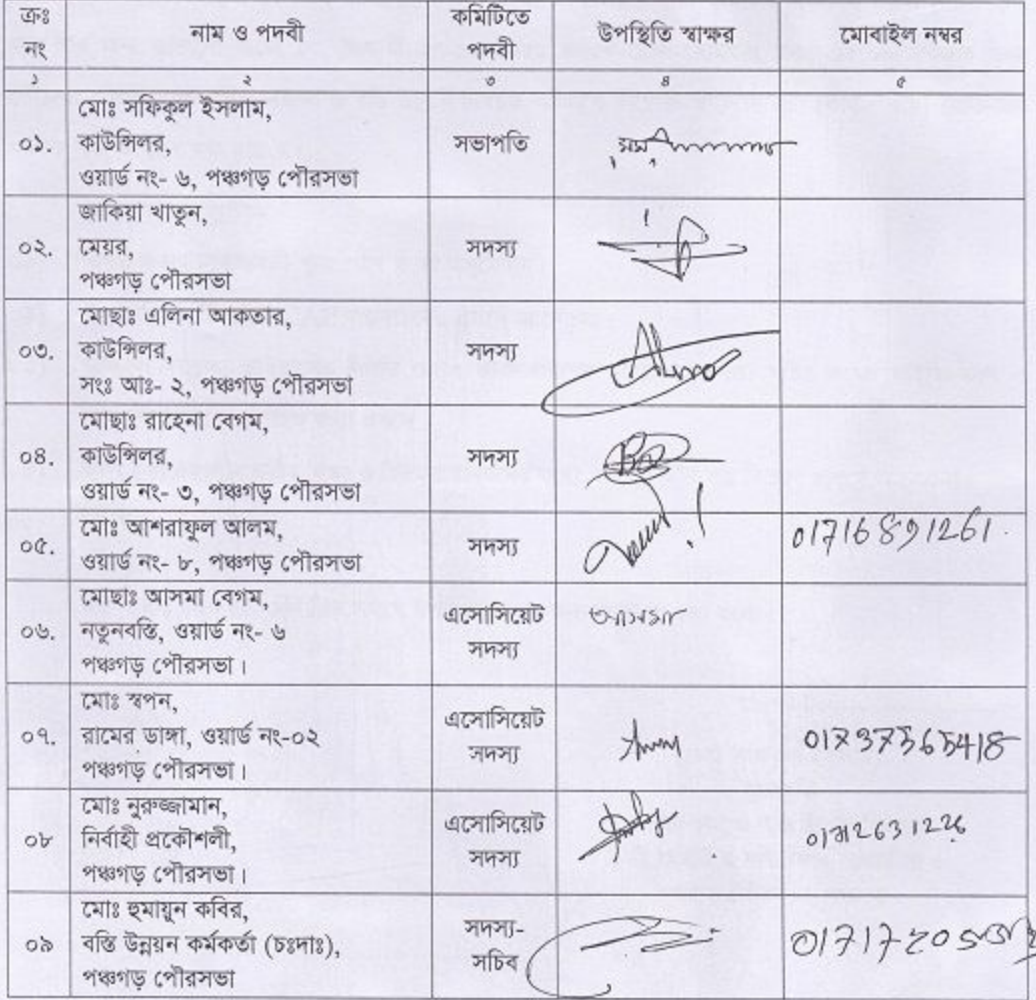 ক্রঃ নং নাম ও পদবী কমিটিতে পদবী উপস্থিতি স্বাক্ষর মোবাইল নম্বর
১ ২ ৩ ৪ ৫
০১. মোঃ সফিকুল ইসলাম,
কাউন্সিলর,
ওয়ার্ড নং- ৬, পঞ্চগড় পৌরসভা
সভাপতি
০২. জাকিয়া খাতুন,
মেয়র,
পঞ্চগড় পৌরসভা
সদস্য
০৩. মোছাঃ এলিনা আকতার,
কাউন্সিলর,
সংঃ আঃ- ২, পঞ্চগড় পৌরসভা
সদস্য
০৪. মোছাঃ রাহেনা বেগম,
কাউন্সিলর,
ওয়ার্ড নং- ৩, পঞ্চগড় পৌরসভা
সদস্য
০৫. মোঃ আশরাফুল আলম,
ওয়ার্ড নং- ৮, পঞ্চগড় পৌরসভা
সদস্য
01716891261
০৬. মোছাঃ আসমা বেগম,
নতুনবস্তি, ওয়ার্ড নং- ৬
পঞ্চগড় পৌরসভা।
এসোসিয়েট
সদস্য
আসমা
০৭. মোঃ স্বপন,
রামের ডাঙ্গা, ওয়ার্ড নং-০২
পঞ্চগড় পৌরসভা।
এসোসিয়েট
সদস্য
০৮ মোঃ নুরুজ্জামান,
নির্বাহী প্রকৌশলী,
পঞ্চগড় পৌরসভা।
এসোসিয়েট
সদস্য
01712631226
০৯ মোঃ হুমায়ুন কবির,
বস্তি উন্নয়ন কর্মকর্তা (চঃদাঃ),
পঞ্চগড় পৌরসভা
সদস্য-
সচিব